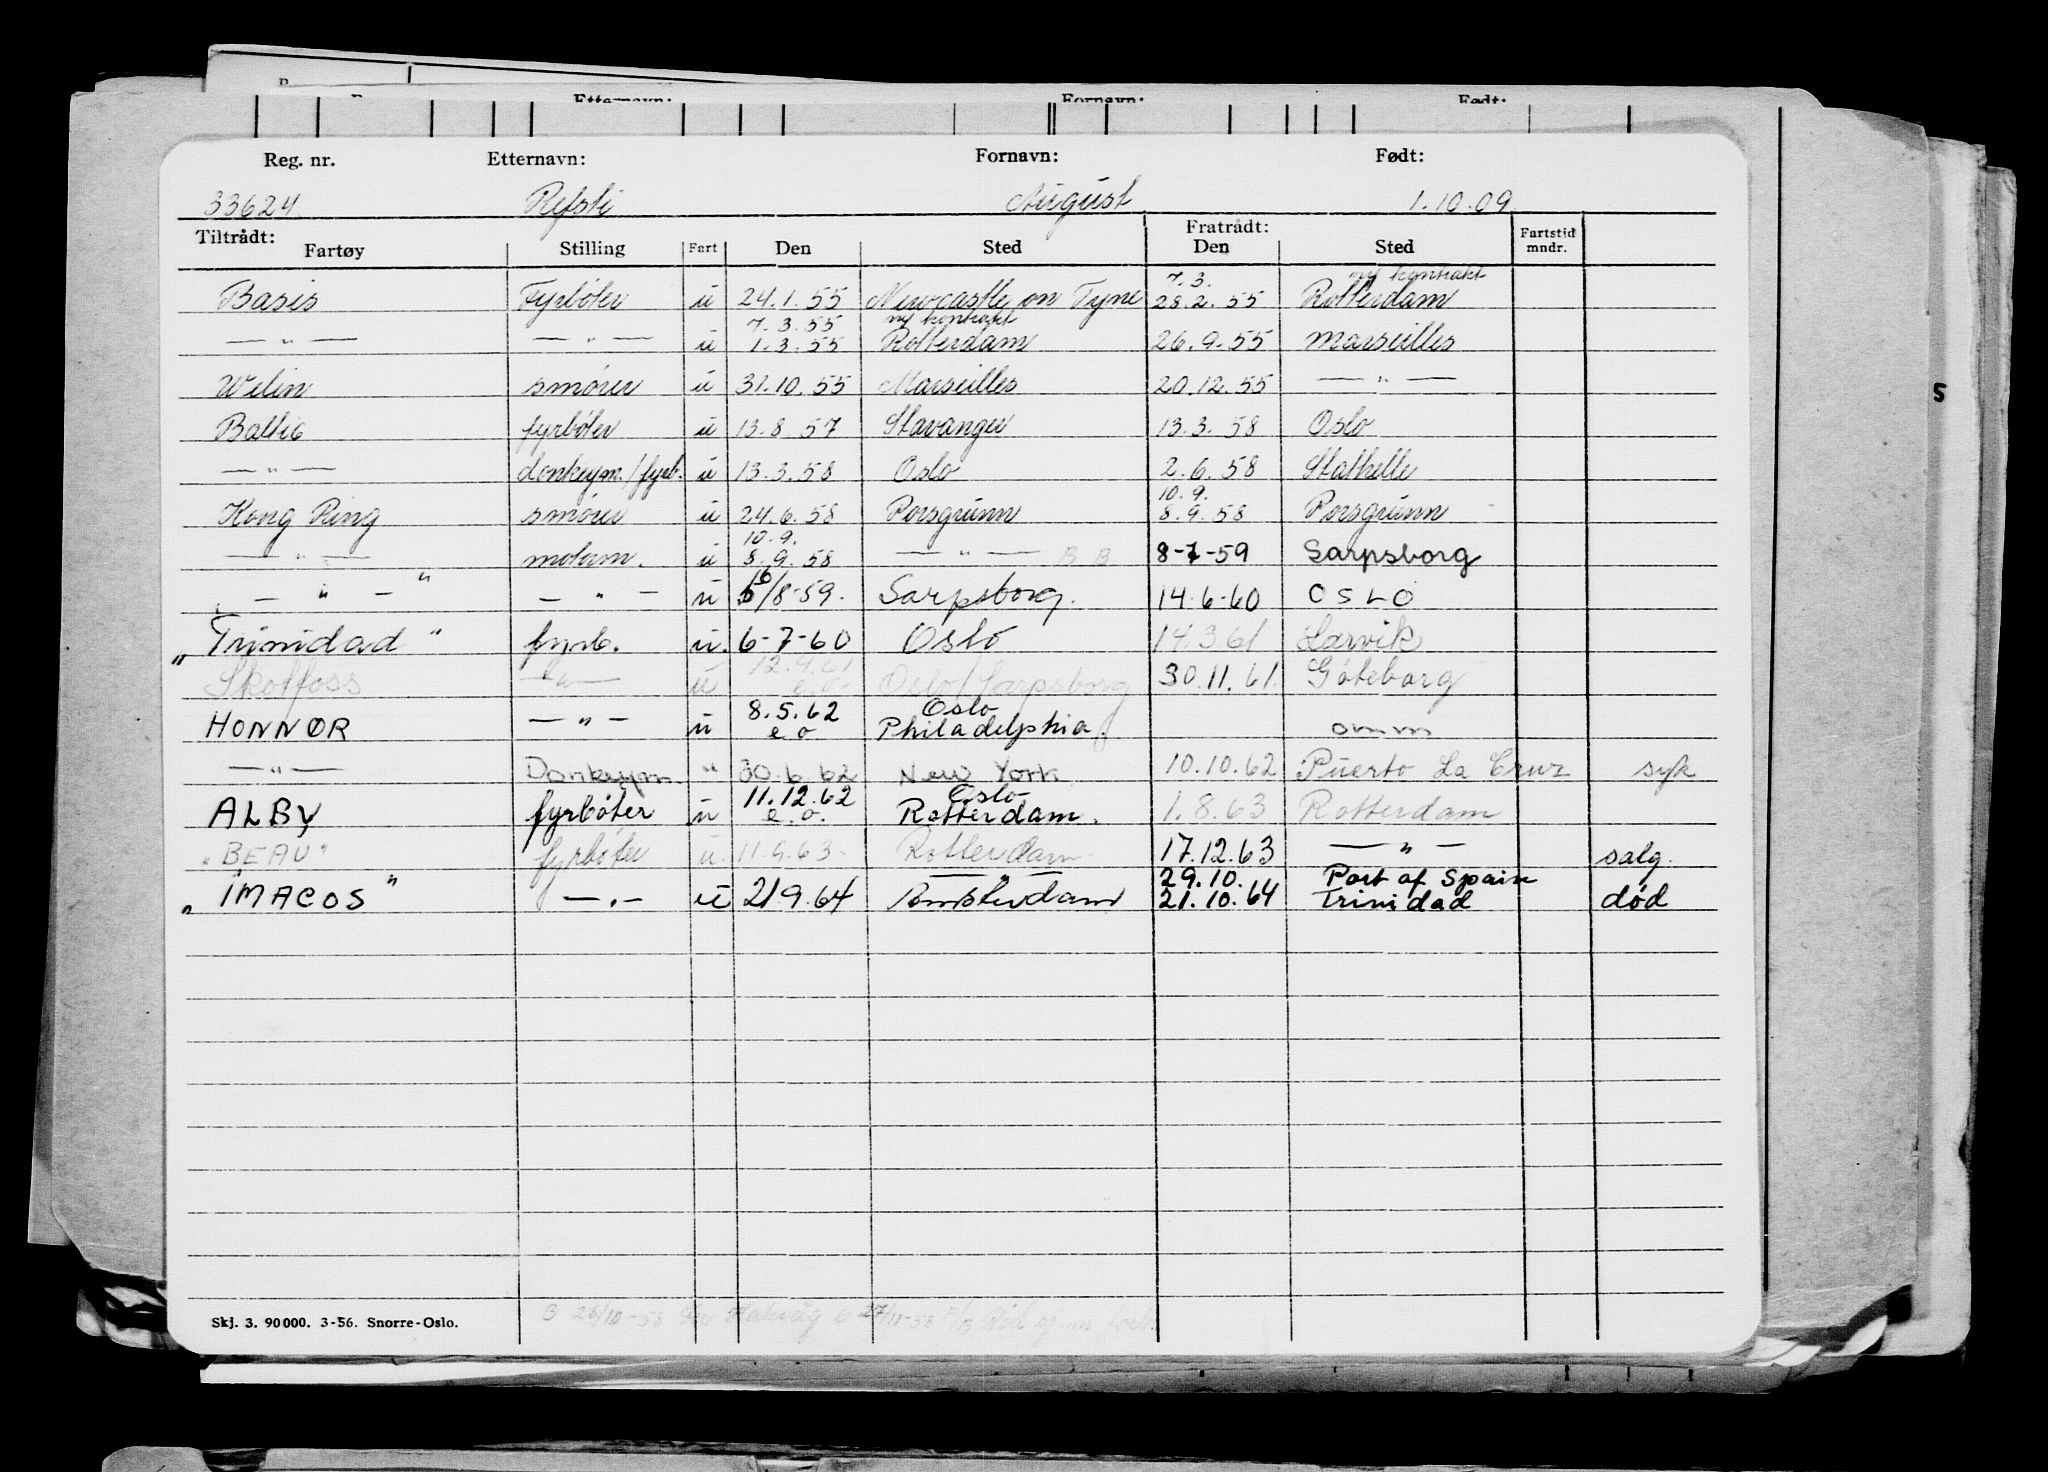 Etternavn: Fornavn: Født:
Reg. nr. Etternavn: Fornavn: Født:
33624 Refsti August 1.10.09
Tiltrådt: Fratrådt:
Fartøy Stilling Fart Den Sted Den Sted Fartstid mndr.
7.3. ny kontrakt
Basis Fyrbøter u 24.1.55 Newcastle on Tyne 28.2.55 Rotterdam
7.3.55 ny kontrakt
— " — — " — u 1.3.55 Rotterdam 26.9.55 Marseilles
Welin smører u 31.10.55 Marseilles 20.12.55 — " —
Baltic fyrbøter u 13.8.57 Stavanger 13.3.58 Oslo
— " — donkeym./fyrb. u 13.3.58 Oslo 2.6.58 Stathelle
10.9.
Kong Ring smører u 24.6.58 Porsgrunn 8.9.58 Porsgrunn
10.9.
— " — motorm. u 8.9.58 — " — B B 8-7-59 Sarpsborg
— " — " — " — u 16/8-59. Sarpsborg. 14.6-60 OSLO
"Trinidad" fyrb. u. 6-7-60 Oslo 14.3.61 Larvik
12.4.61
Skotfoss — " — u e.o. Oslo/Sarpsborg 30.11.61. Göteborg
8.5.62 Oslo
HONNØR — " — u e.o. Philadelphia. omm
— " — Donkeym. " 30.6.62 New York 10.10.62 Puerto La Cruz syk
11.12.62 Oslo
ALBY fyrbøter u e.o. Rotterdam. 1.8.63 Rotterdam
"BEAU" fyrbøter u. 11.9.63. Rotterdam 17.12.63 — " — salg.
— " — 29.10. Port of Spain
"IMACOS" — " — u 21.9.64 Amsterdam 21.10.64 Trinidad død
S
Skj. 3. 90 000. 3-56. Snorre-Oslo.
B 23/10-58 27/11-58